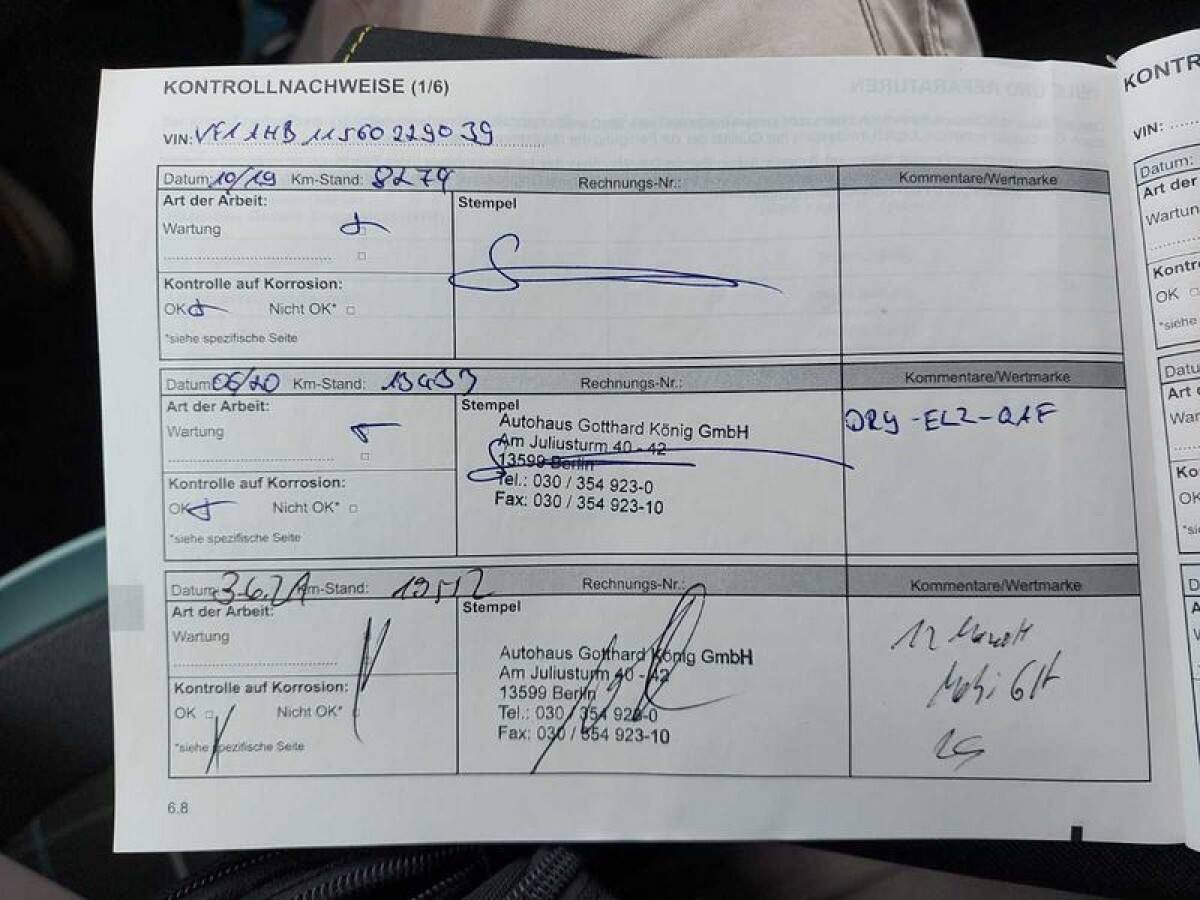 KONTROLLNACHWEISE (1/6)
VIN: VF11HB11560229039
Datum: 10/19 Km-Stand: 8279 Rechnungs-Nr.: Kommentare/Wertmarke
Art der Arbeit: Stempel
Wartung
Kontrolle auf Korrosion:
OK Nicht OK*
*siehe spezifische Seite
Datum 06/20 Km-Stand: Rechnungs-Nr.: Kommentare/Wertmarke
Art der Arbeit: Stempel
Autohaus Gotthard König GmbH
Wartung
Am Juliusturm 40 - 42
13599 Berlin
Tel.: 030 / 354 923-0
Fax: 030 / 354 923-10
Kontrolle auf Korrosion:
OK Nicht OK*
*siehe spezifische Seite
Datum Km-Stand: Rechnungs-Nr.: Kommentare/Wertmarke
Art der Arbeit: Stempel
Wartung
Autohaus Gotthard König GmbH
Am Juliusturm 40 - 42
13599 Berlin
Tel.: 030 / 354 923-0
Fax: 030 / 354 923-10
Kontrolle auf Korrosion:
OK Nicht OK*
*siehe spezifische Seite
6.8
KONTR
VIN:
Datum:
Art der
Wartun
OK
*siehe